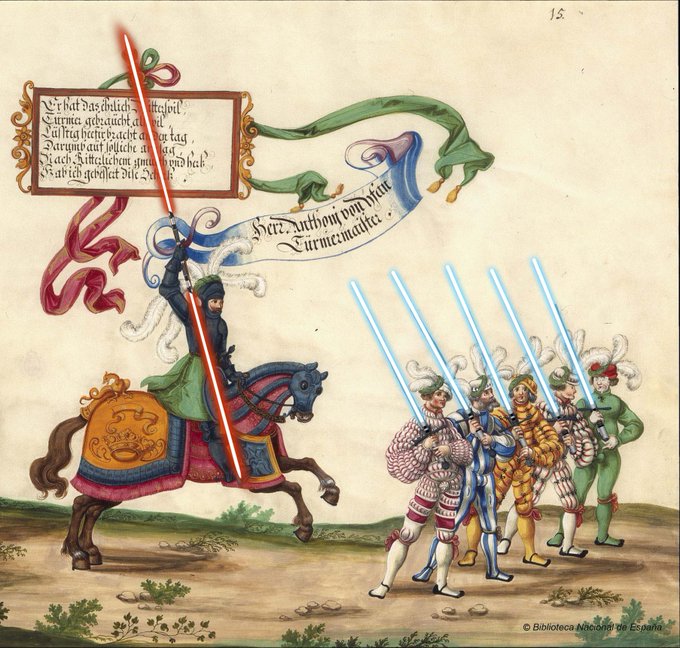 15.
Er hat daz ehrlich Ritterspil,
Turnier gebraucht
Lusstig herfür bracht an den tag,
Darumb auf solliche
Nach Ritterlichem gmueth vnd
Hab ich gebessert dise
Herr Anthonj von Yfan
Türniermaister.
© Biblioteca Nacional de España